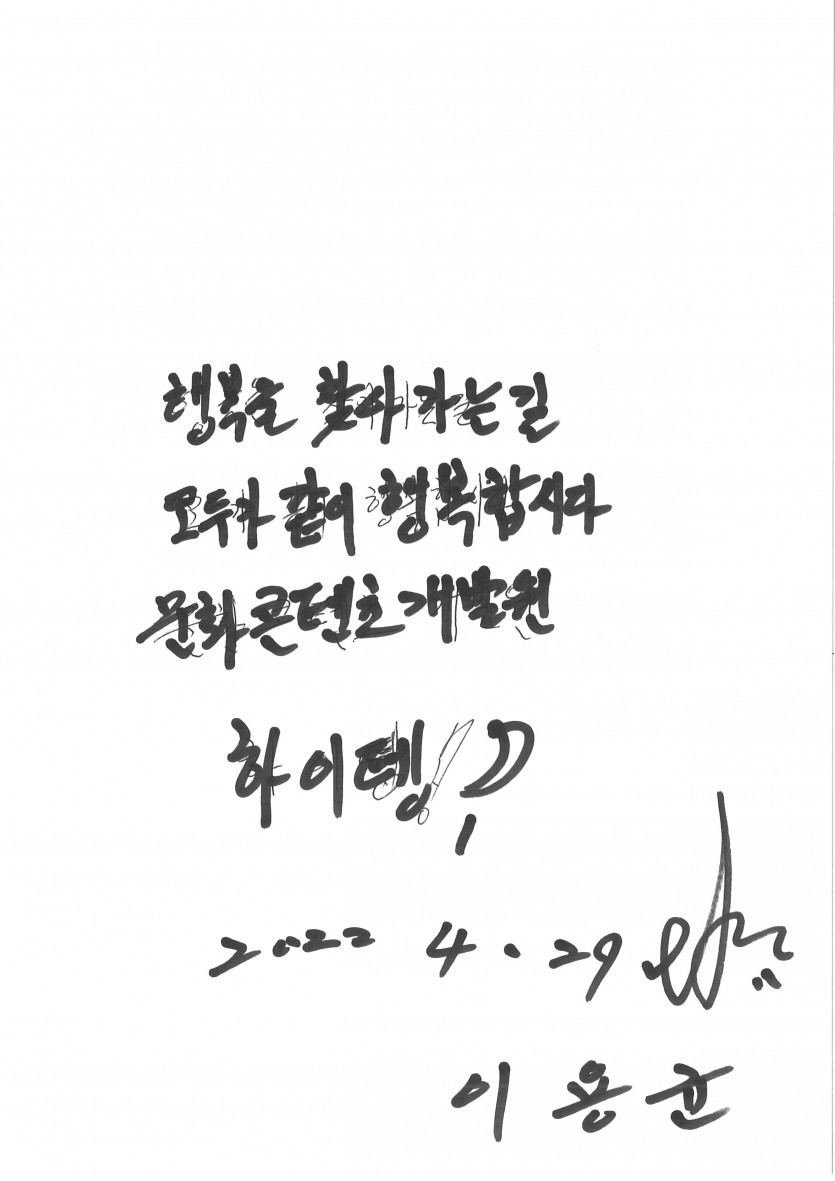 행복을 찾아가는길
모두가 같이 행복합시다
문화콘텐츠개발원
하이텡!
2022 4.29
이용균